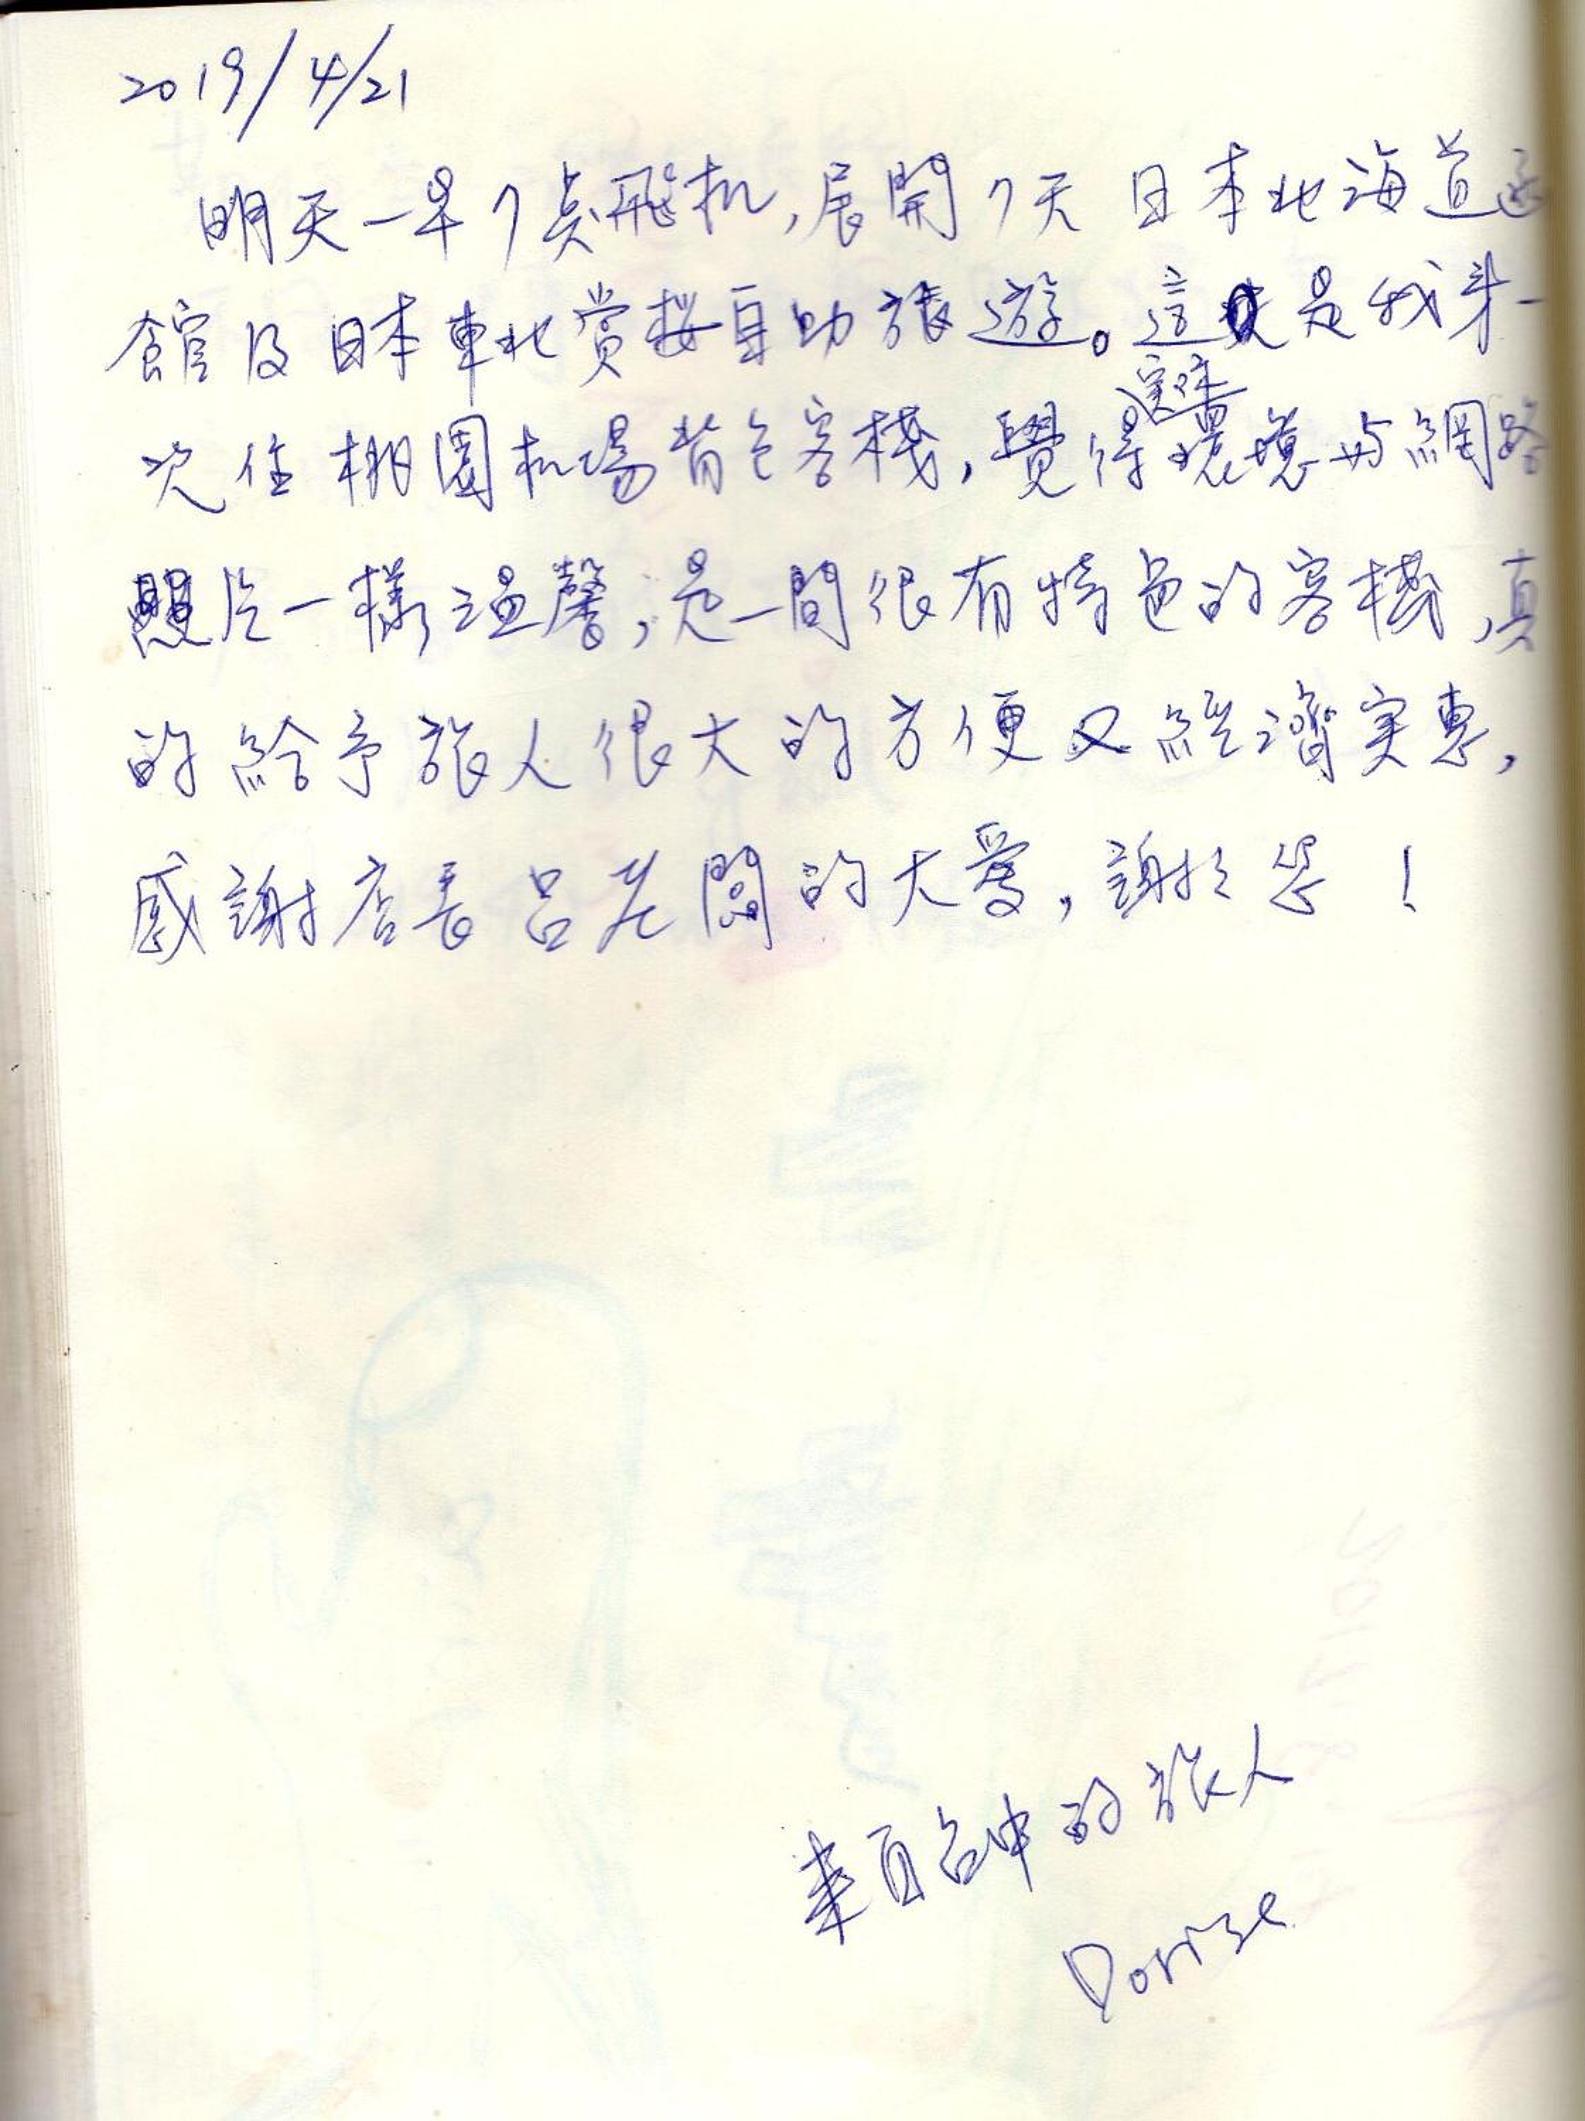 2019/4/21
明天一早7点飛机,展開7天 日本北海道
館及日本東北賞桜自助旅遊。這是我第一
次住桃園机場背包客棧,覺得這環境与網路
照片一樣溫馨,是一間很有特色的客棧,真
的給予旅人很大的方便又經濟实惠,
感謝店長呂 闆的大愛,謝謝您!
來自台中的旅人
Dorise